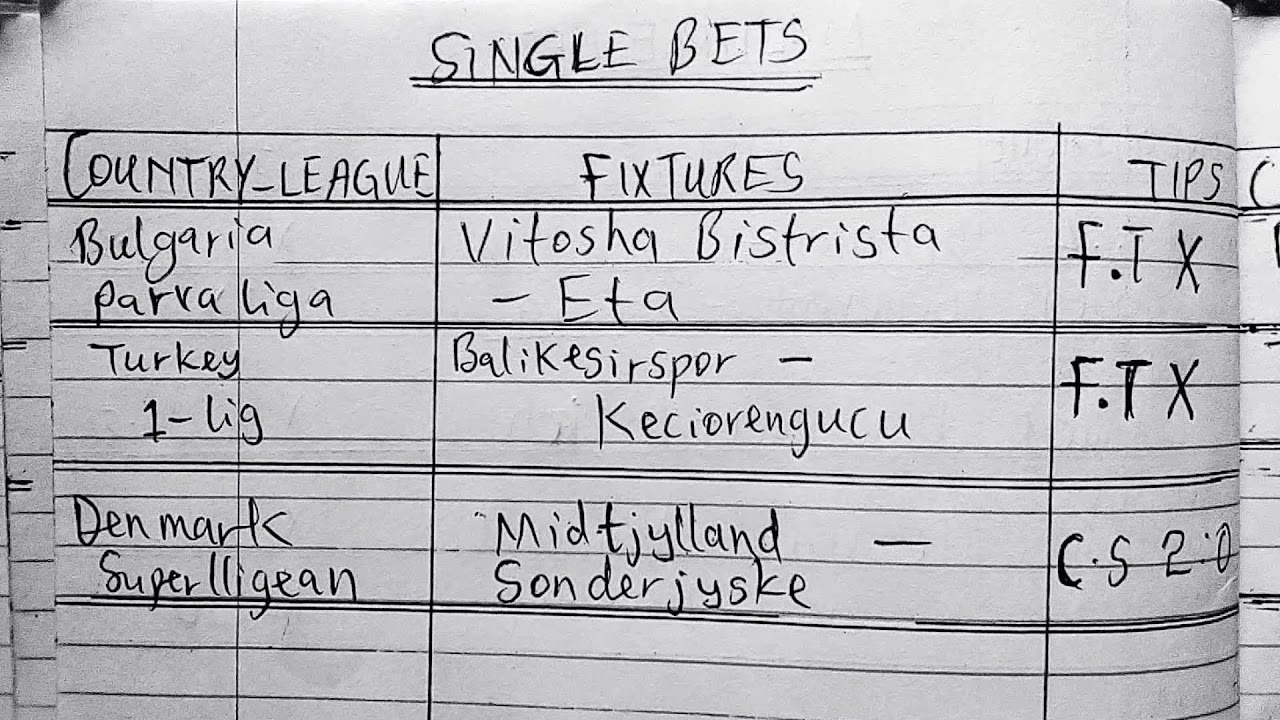 SINGLE BETS
COUNTRY-LEAGUE FIXTURES TIPS
Bulgaria Vitosha Bistrista F.T X
parva liga - Eta
Turkey Balikesirspor - F.T X
1-lig Keciorengucu
Denmark Midtjylland - C.S 2:0
Superlligean Sonderjyske